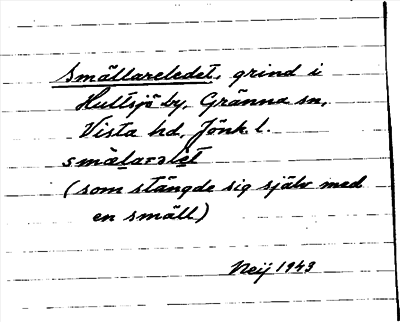 Smällareledet, grind i
Hultsjö by, Gränna sn,
Vista hd, Jönk l.
smälarəlet
(som stängde sig själv med
en smäll)
Neij 1943